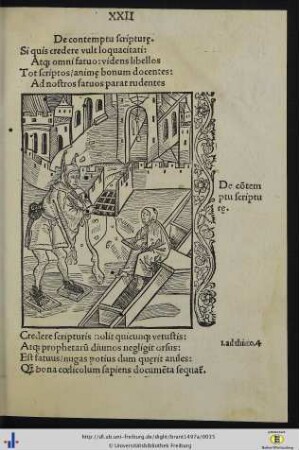 XXII
De contemptu scripturę.
Si quis credere vult loquacitati:
Atq; omni fatuo: videns libellos
Tot scriptos/animę bonum docentes:
Ad nostros fatuos parat rudentes
De cōtem
ptu scriptu
rę.
Credere scripturis nolit quicunq; vetustis:
Atq; prophetarū diuinos negligit orsus:
Est fatuus/nugas potius dum quęrit aniles:
Q̄ bona cœlicolum sapiens documēta sequat̄.
http://dl.ub.uni-freiburg.de/diglit/brant1497a/0035
© Universitätsbibliothek Freiburg